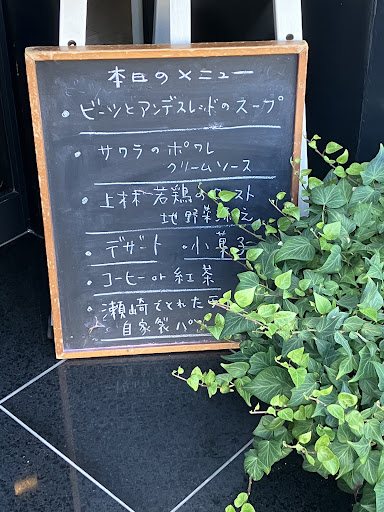 本日のメニュー
・ビーツとアンデスレッドのスープ
・サワラのポワレ
クリームソース
・上林若鶏のロースト
地野菜添え
・デザート ・小菓子
・コーヒー or 紅茶
・瀬崎でとれた
自家製パン